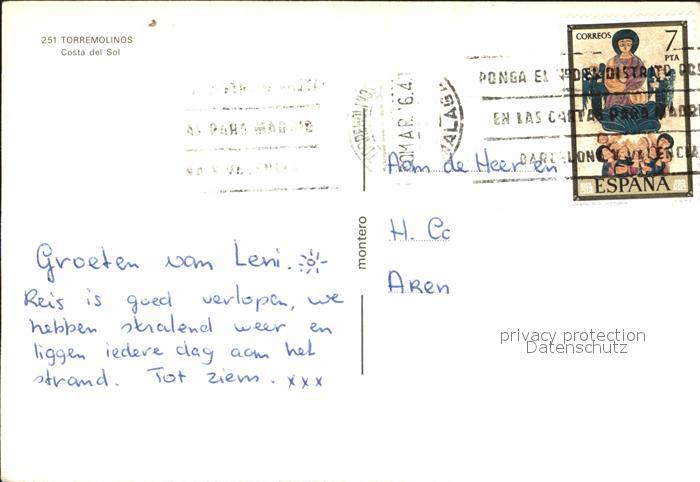 251 TORREMOLINOS
Costa del Sol
CORREOS 7
PTA
ESPAÑA
PONGA EL Nº DEL DISTRITO
EN LAS CARTAS PARA MADRID
BARCELONA Y VALENCIA
PARA MADRID
MAR
Aan de Heer en
H. Co
Aren
montero
Groeten van Leni.
Reis is goed verlopen, we
hebben stralend weer en
liggen iedere dag aan het
strand. Tot ziens. xxx
privacy protection
Datenschutz